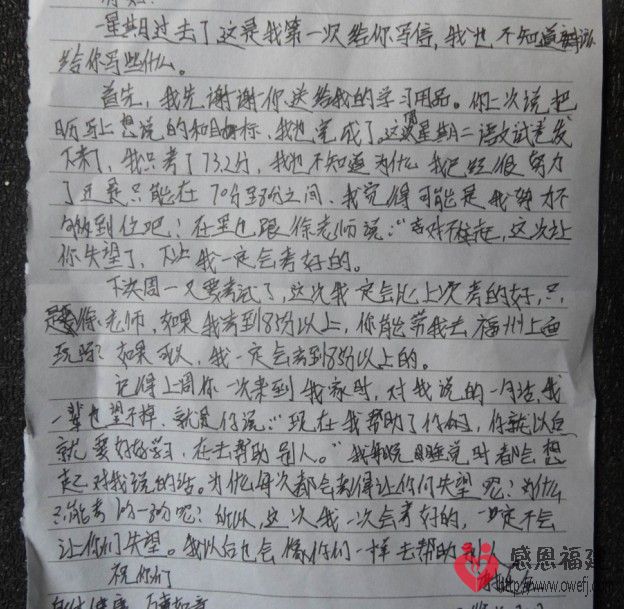 一星期过去了这是我第一次给你写信,我也不知道
给你写些什么。
首先,我先谢谢你送给我的学习用品。你上次说把
晚上想说的和目标,我也完成了。这星期二语文试卷发
下来了,我只考了73.2分,我也不知道为什么我已经很努力
了还是只能在70分至80分之间、我觉得可能是我努力不
够到位吧!在里也跟徐老师说:"对不起,这次让
你失望了,下次我一定会考好的。
下次周一又要考试了,这次我一定会比上次考的好,只
是徐老师,如果我考到85分以上,你能带我去福州上面
玩吗?如果可以,我一定会考到85分以上的。
记得上周你一次来到我家时,对我说的一句话,我
一辈也望不掉、就是你说:"现在我帮助了你们,你就以后
就要好好学习,在去帮助别人。"我每晚睡觉时都会想
起对我说的话。为什么每次都会考得让你们失望呢?为什么
只能考 呢?所以,这次我一次会考好的,一定不会
让你们失望。我以后也会像你们一样去帮助别人。
祝你们
身体健康、万事如意
感恩福建
www.owefj.com